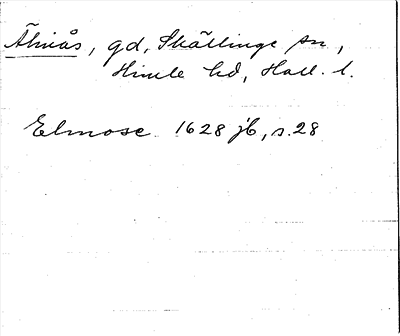 Älmås, gd, Skällinge sn,
Himle hd, Hall. l.
Elmose 1628 jb, s. 28